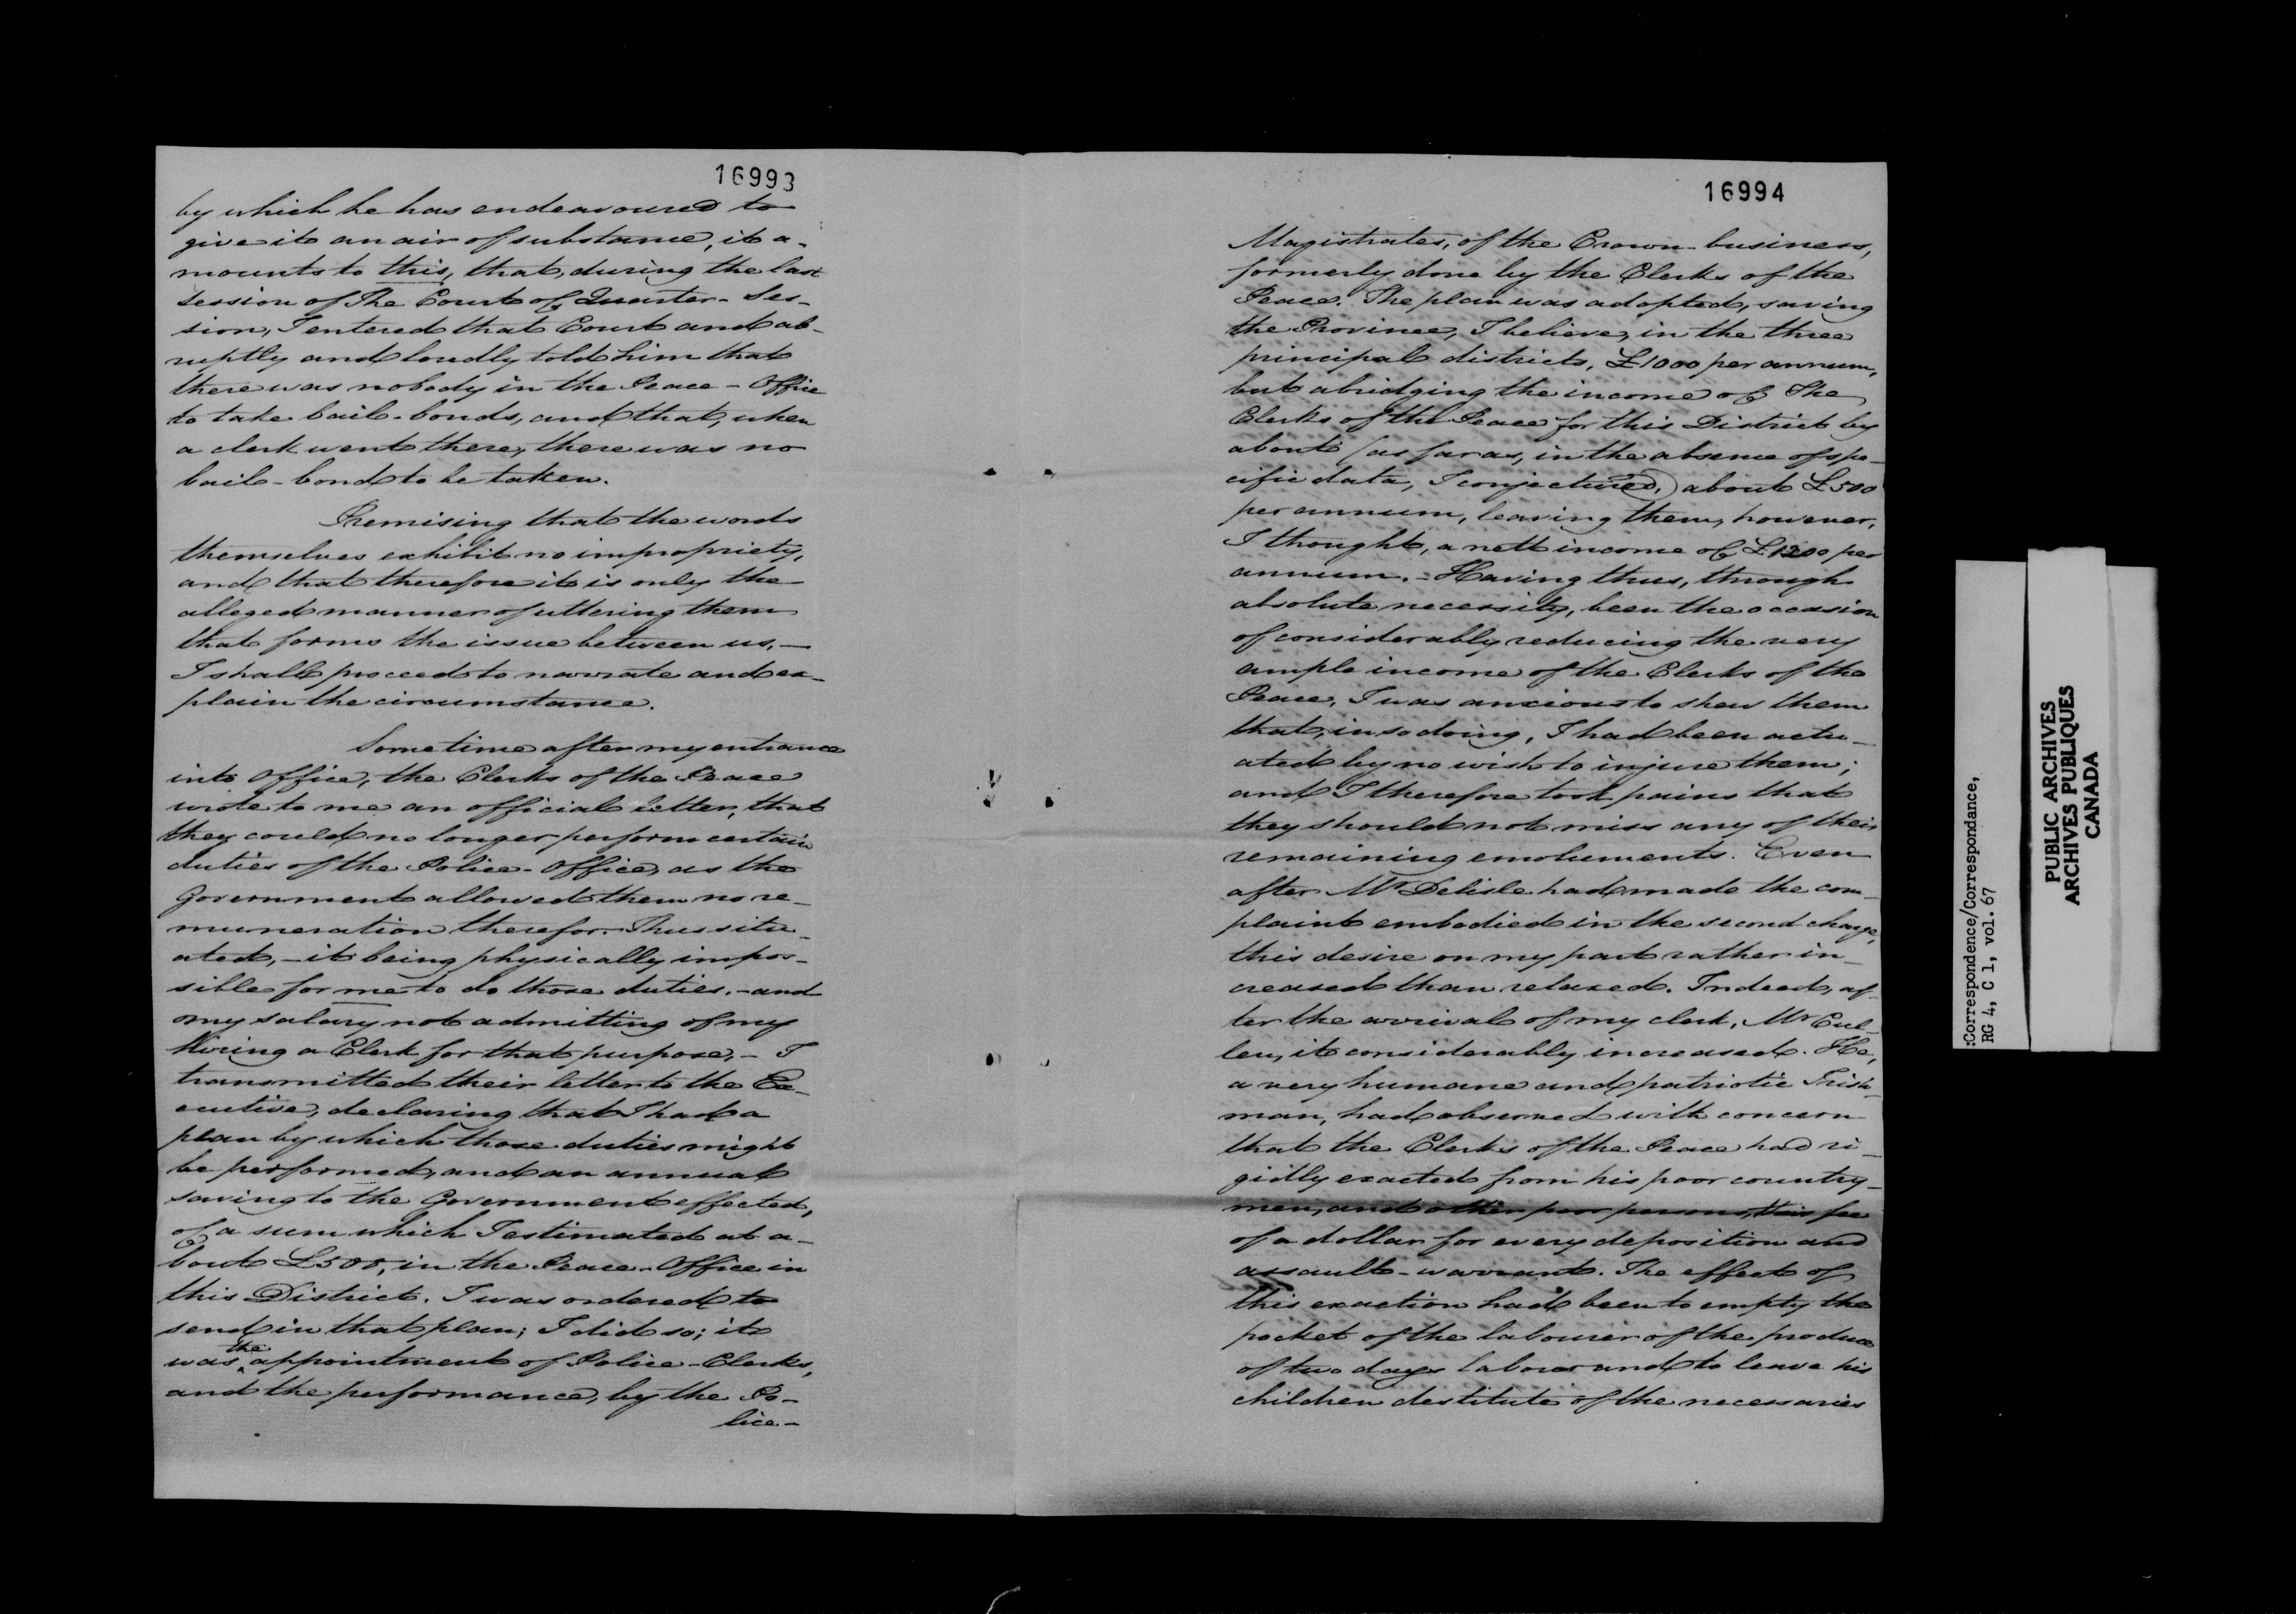 16993
by which he has endeavoured to
give it an air of substance, it a-
mounts to this, that, during the last
session of The Court of Quarter-Ses-
sion, I entered that Court and ab-
ruptly and loudly told him that
there was nobody in the Peace-Office
to take bail-bonds, and that, when
a clerk went there, there was no
bail-bond to be taken.
Premising that the words
themselves exhibit no impropriety,
and that therefore it is only the
alleged manner of uttering them
that forms the issue between us,—
I shall proceed to narrate and ex-
plain the circumstance.
Sometime after my entrance
into Office, the Clerks of the Peace
wrote to me an official letter, that
they could no longer perform certain
duties of the Police-Office, as the
Government allowed them no re-
muneration therefor. Thus situ-
ated,—it being physically impos-
sible for me to do those duties,—and
my salary not admitting of my
hiring a Clerk for that purpose,— I
transmitted their letter to the Ex-
ecutive, declaring that I had a
plan by which those duties might
be performed, and an annual
saving to the Government effected,
of a sum which I estimated at a-
bout £500, in the Peace-Office in
this District. I was ordered to
send in that plan; I did so; it
was the appointment of Police-Clerks,
and the performance, by the Po-
lice-
16994
Magistrates, of the Crown-business,
formerly done by the Clerks of the
Peace. The plan was adopted, saving
the Province, I believe, in the three
principal districts, £1000 per annum,
but abridging the income of The
Clerks of the Peace for this District by
about (as far as, in the absence of spe-
cific data, I conjectured,) about £500
per annum, leaving them, however,
I thought, a nett income of £1200 per
annum.—Having thus, through
absolute necessity, been the occasion
of considerably reducing the very
ample income of the Clerks of the
Peace, I was anxious to shew them
that, in so doing, I had been actu-
ated by no wish to injure them;
and I therefore took pains that
they should not miss any of their
remaining emoluments. Even
after Mr Delisle had made the com-
plaint embodied in the second charge,
this desire on my part rather in-
creased than relaxed. Indeed, af-
ter the arrival of my clerk, Mr Cul-
len, it considerably increased. He,
a very humane and patriotic Irish-
man, had observed with concern
that the Clerks of the Peace had ri-
gidly exacted from his poor country-
men, and other poor persons, their fee
of a dollar for every deposition and
assault-warrant. The effect of
this exaction had been to empty the
pocket of the labourer of the produce
of two days labour and to leave his
children destitute of the necessaries
:Correspondence/Correspondance,
RG 4, C 1, vol. 67
PUBLIC ARCHIVES
ARCHIVES PUBLIQUES
CANADA